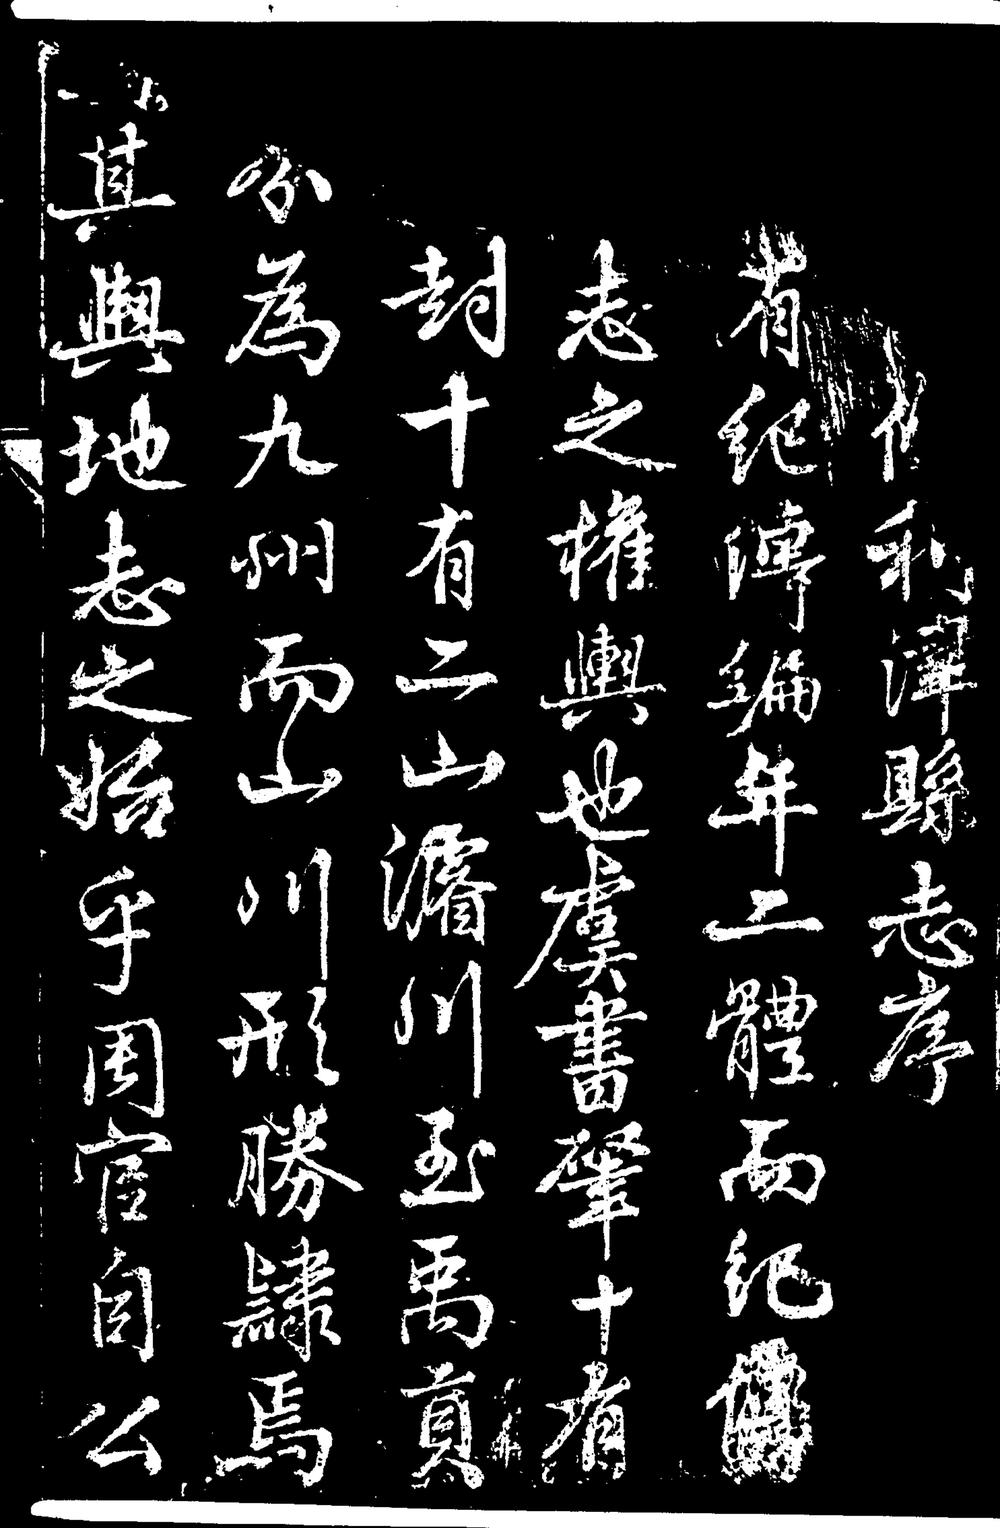 修利津縣志序
有紀傳編年二體而紀
志之權輿也虞書肇十有
封十有二山濬川至禹貢
分為九州而山川形勝隸焉
其輿地志之始乎周官自公